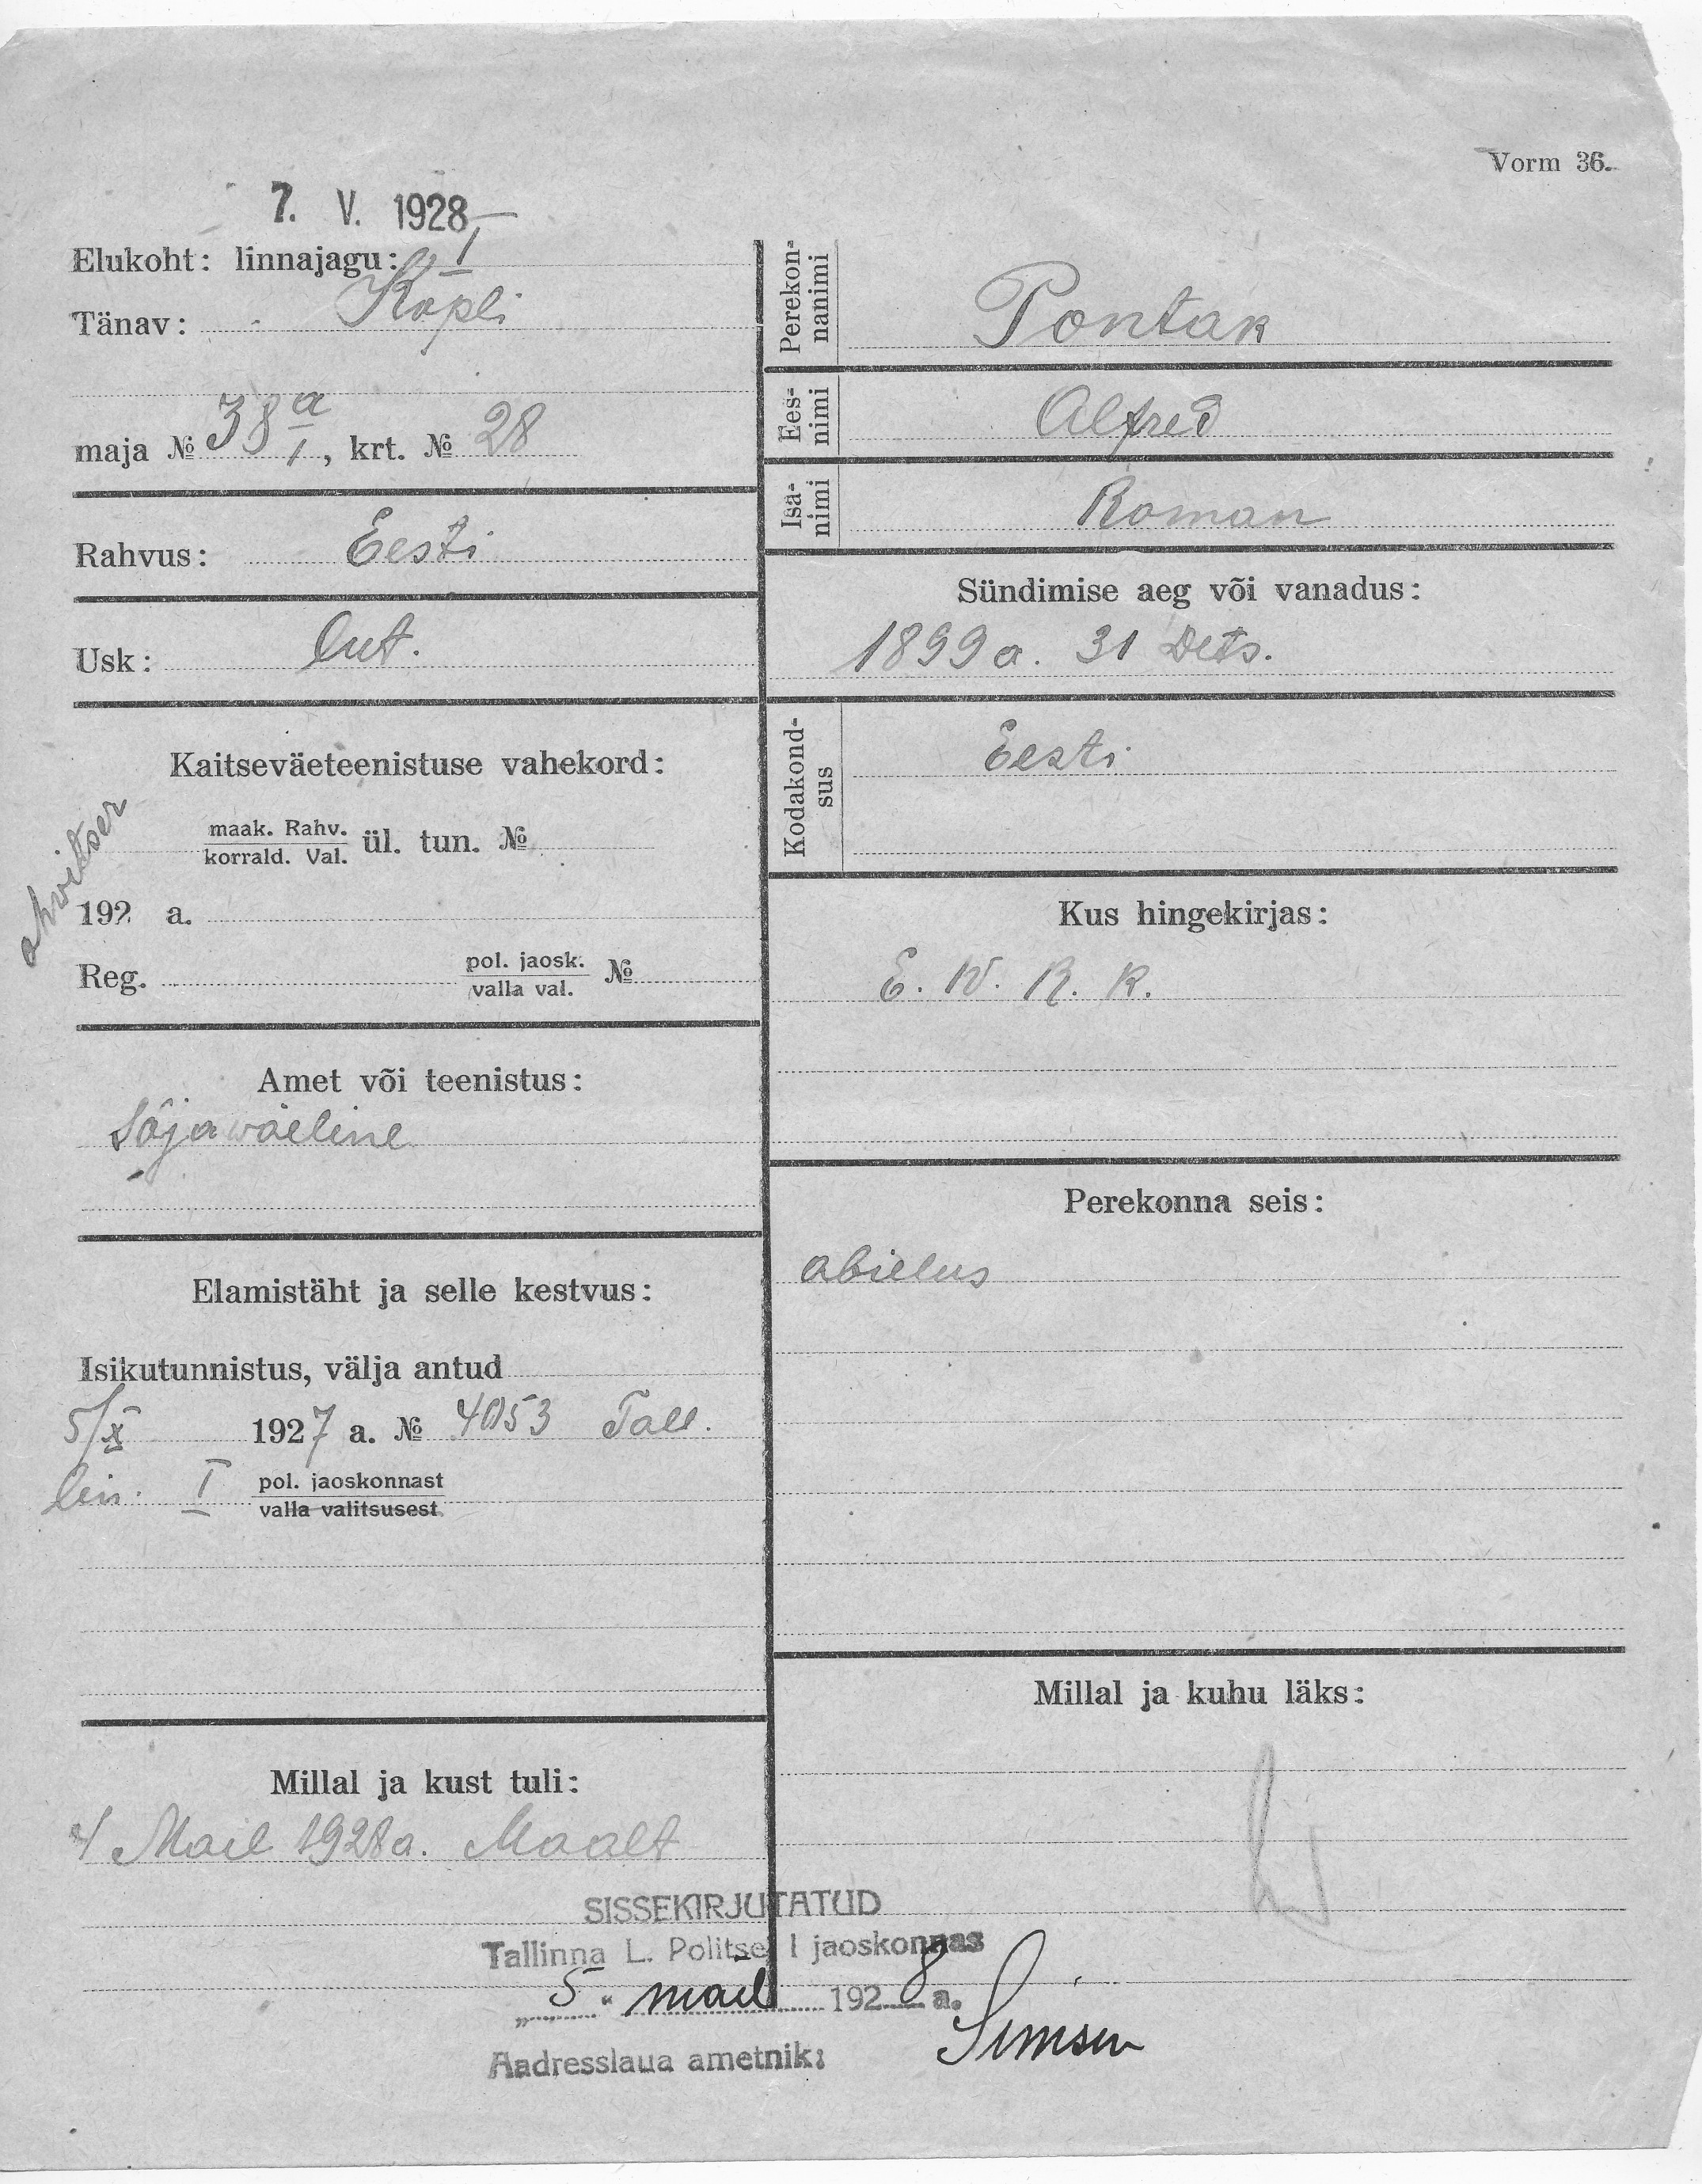 Vorm 36.
7. V. 1928
Elukoht: linnajagu: I
Tänav: Kopli
maja № 38 a/I, krt. № 28
Rahvus: Eesti
Usk: Lut.
Kaitseväeteenistuse vahekord:
maak. Rahv.
korrald. Val. ül. tun. №
ohvitser
192 a.
Reg. pol. jaosk. №
valla val.
Amet või teenistus:
Sõjawäeline
Elamistäht ja selle kestvus:
Isikutunnistus, välja antud
5/X 1927 a. № 4053 Tall.
lin. I pol. jaoskonnast
valla valitsusest
Millal ja kust tuli:
4 Mail 1928 a. Maalt
Perekon-
nanimi
Pontak
Ees-
nimi
Alfred
Isa-
nimi
Roman
Sündimise aeg või vanadus:
1899 a. 31 Dets.
Kodakond-
sus
Eesti
Kus hingekirjas:
E. W. R. K.
Perekonna seis:
abielus
Millal ja kuhu läks:
SISSEKIRJUTATUD
Tallinna L. Politsei I jaoskonnas
„5“ mail 1928 a.
Aadresslaua ametnik: